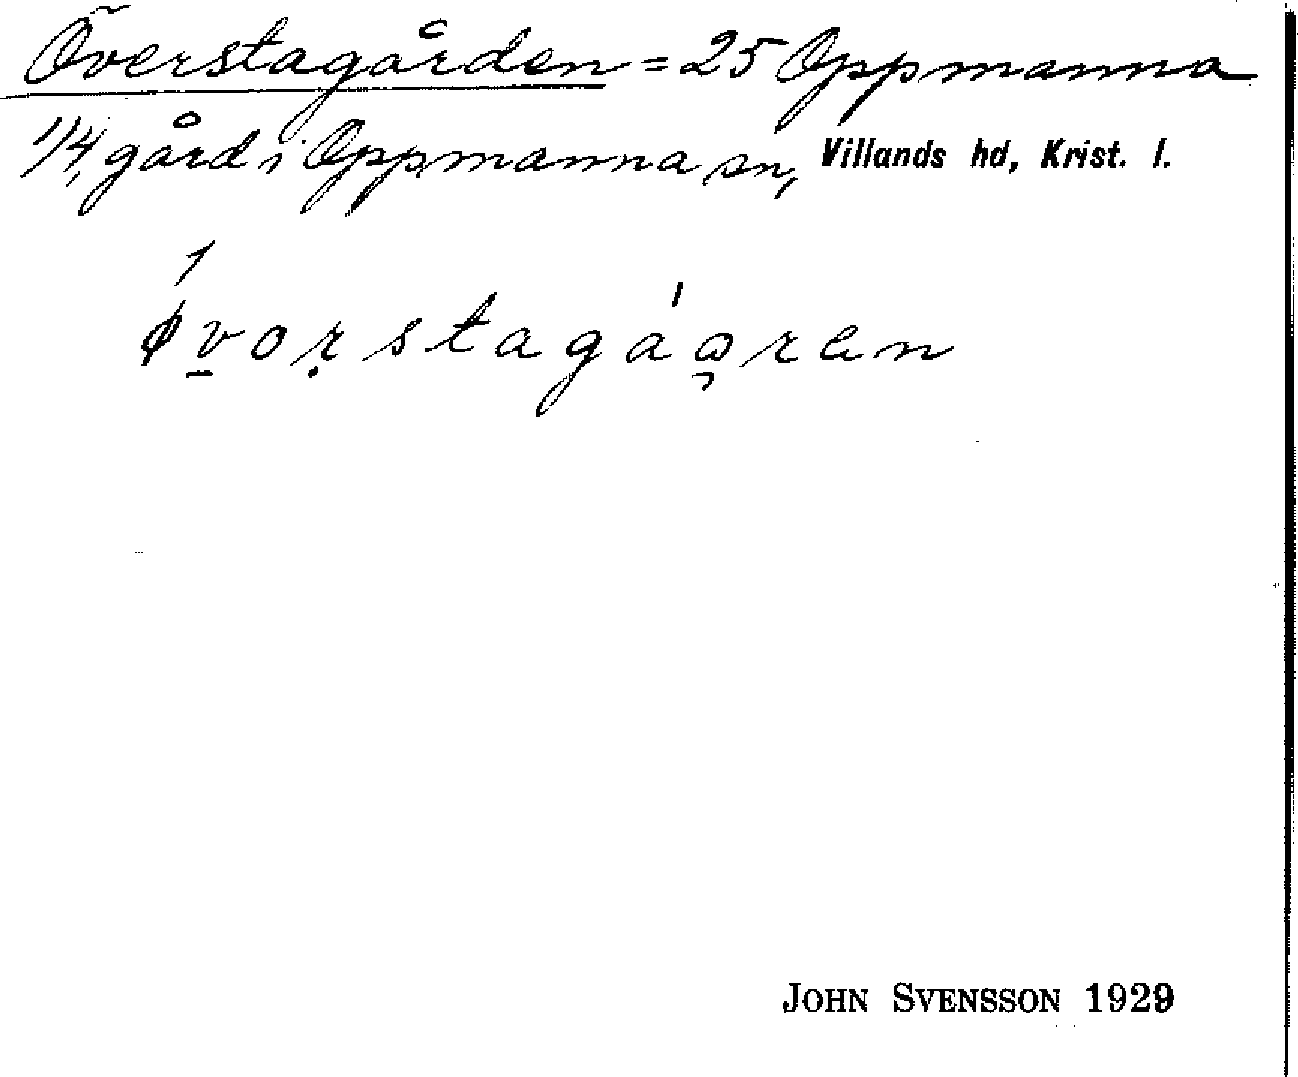 Överstagården = 25 Oppmanna
1/4 gård i Oppmanna sn, Villands hd, Krist. l.
øvorstagáåren
JOHN SVENSSON 1929